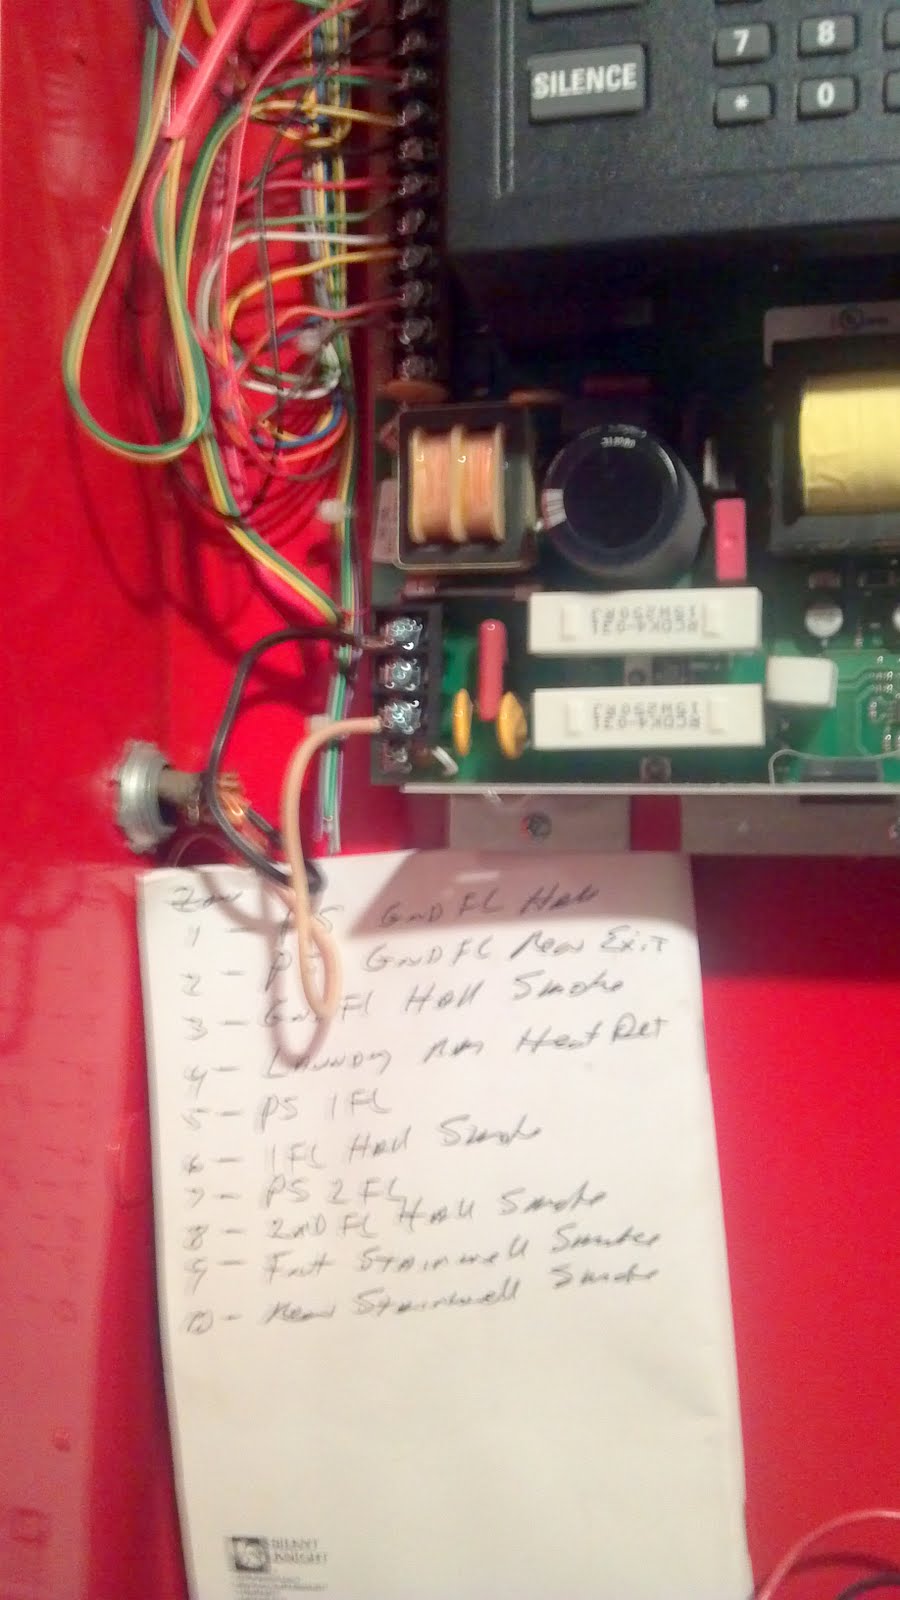 7 8
SILENCE
* 0
Zone
1 - PS GND FL Hall
2 - PS GND FL Rear Exit
3 - GND FL Hall Smoke
4 - Laundry Rm Heat Det
5 - PS 1FL
6 - 1FL Hall Smoke
7 - PS 2FL
8 - 2ND FL Hall Smoke
9 - Frnt Stairwell Smoke
10 - Rear Stairwell Smoke
SILENT
KNIGHT